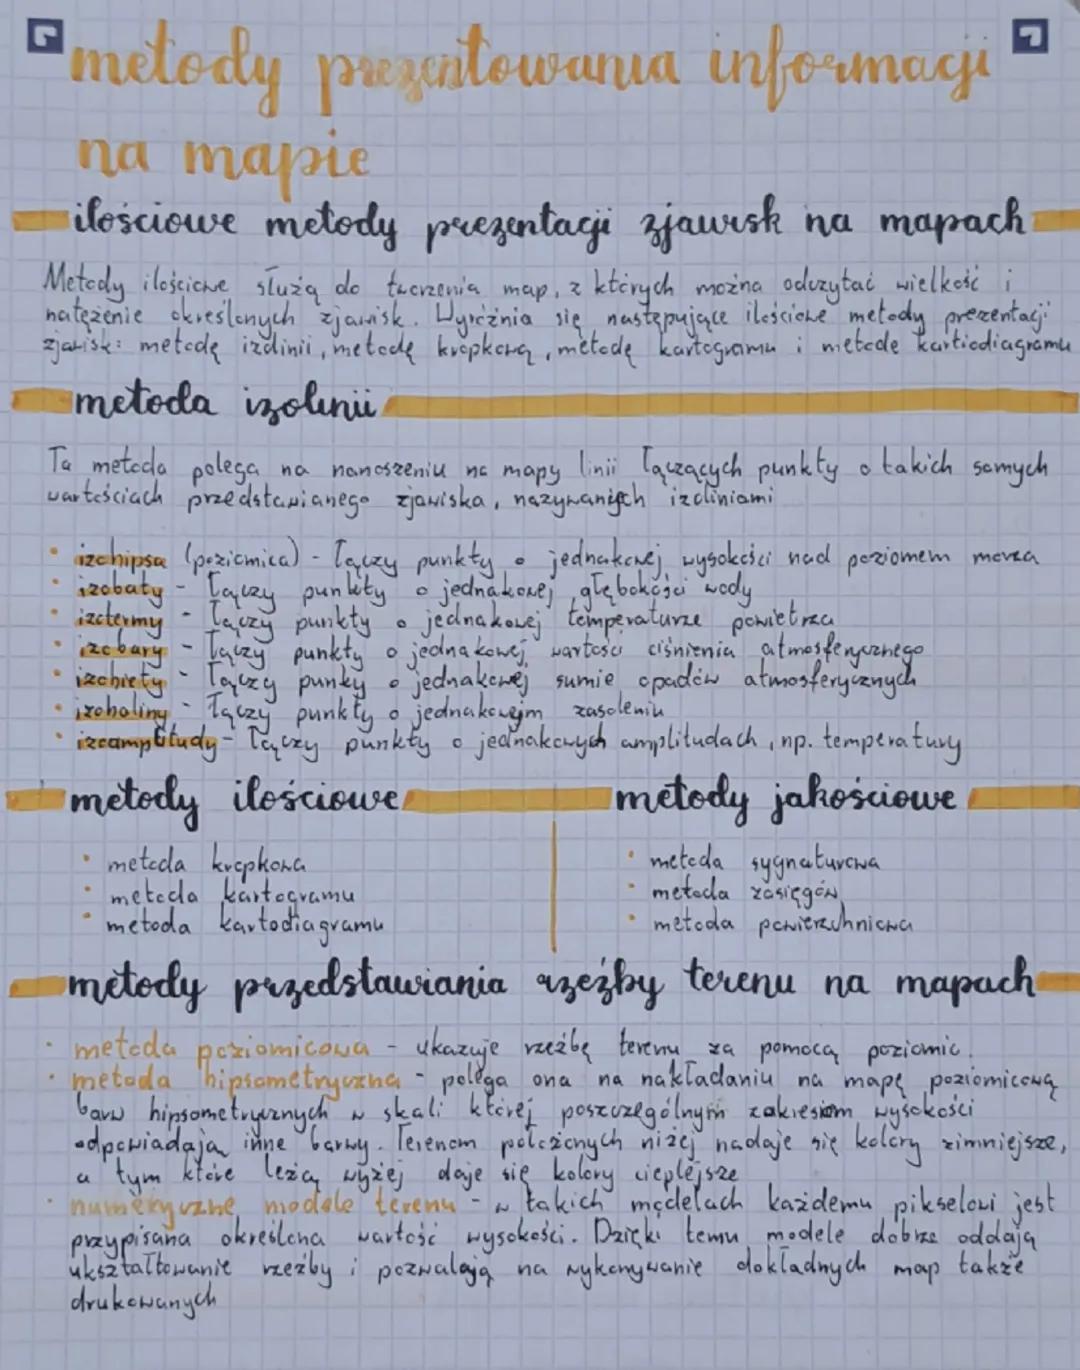 metody prezentowania informacji
na mapie
ilościowe metody prezentacji zjawisk na mapach
Metody ilościowe służą do tworzenia map, z których można odczytać wielkość i
natężenie określonych zjawisk. Wyróżnia się następujące ilościowe metody prezentacji
zjawisk: metodę izolinii, metodę kropkową, metodę kartogramu i metodę kartiodiagramu
metoda izolinii
Ta metoda polega na nanoszeniu na mapy linii łączących punkty o takich samych
wartościach przedstawianego zjawiska, nazywanych izoliniami
• izohipsa (poziomica) - łączy punkty o jednakowej wysokości nad poziomem morza
• izobaty - łączy punkty o jednakowej głębokości wody
• izotermy - łączy punkty o jednakowej temperaturze powietrza
• izobary - łączy punkty o jednakowej wartości ciśnienia atmosferycznego
• izohiety - łączy punky o jednakowej sumie opadów atmosferycznych
• izohaliny - łączy punkty o jednakowejm zasoleniu
• izoamplitudy - łączy punkty o jednakowych amplitudach, np. temperatury
metody ilościowe
• metoda kropkowa
• metoda kartogramu
• metoda kartodiagramu
metody jakościowe
• metoda sygnaturowa
• metoda zasięgów
• metoda powierzchniowa
metody przedstawiania rzeźby terenu na mapach
• metoda poziomicowa - ukazuje rzeźbę terenu za pomocą poziomic.
• metoda hipsometryczna - polega ona na nakładaniu na mapę poziomicową
barw hipsometrycznych w skali której poszczególnym zakresiom wysokości
odpowiadają inne barwy. Terenom położonych niżej nadaje się kolory zimniejsze,
a tym które leżą wyżej daje się kolory cieplejsze
• numeryczne modele terenu - w takich modelach każdemu pikselowi jest
przypisana określona wartość wysokości. Dzięki temu modele dobrze oddają
ukształtowanie rzeźby i pozwalają na wykonywanie dokładnych map także
drukowanych